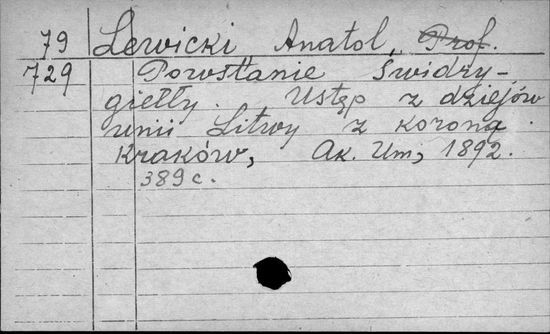 79 Lewicki Anatol, Prof.
729 Powstanie Świdry-
giełły. Ustęp z dziejów
unii Litwy z koroną.
Kraków, Ak. Um, 1892.
389 c.